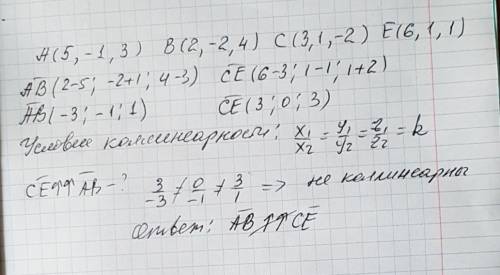 A(5, -1, 3) B(2, -2, 4) C(3, 1, -2) E(6, 1, 1)
A̅B̅(2-5; -2+1; 4-3) C̅E̅(6-3; 1-1; 1+2)
A̅B̅(-3; -1; 1) C̅E̅(3; 0; 3)
Условие коллинеарности: x₁/x₂ = y₁/y₂ = z₁/z₂ = k
C̅E̅⇈A̅B̅-? 3/-3 ≠ 0/-1 ≠ 3/1 => не коллинеарны
Ответ: A̅B̅ ⇈̸ C̅E̅